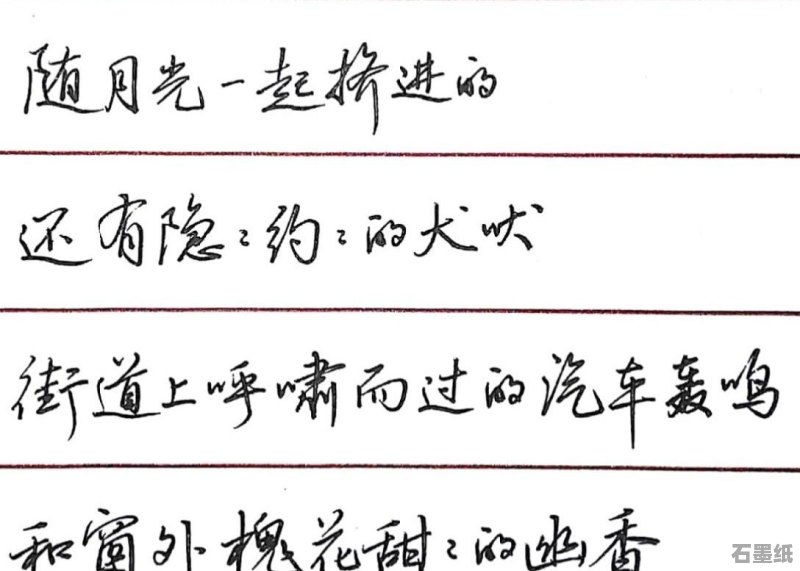 随月光一起挤进的
还有隐:约:的犬吠
街道上呼啸而过的汽车轰鸣
和窗外槐花甜:的幽香
石墨纸